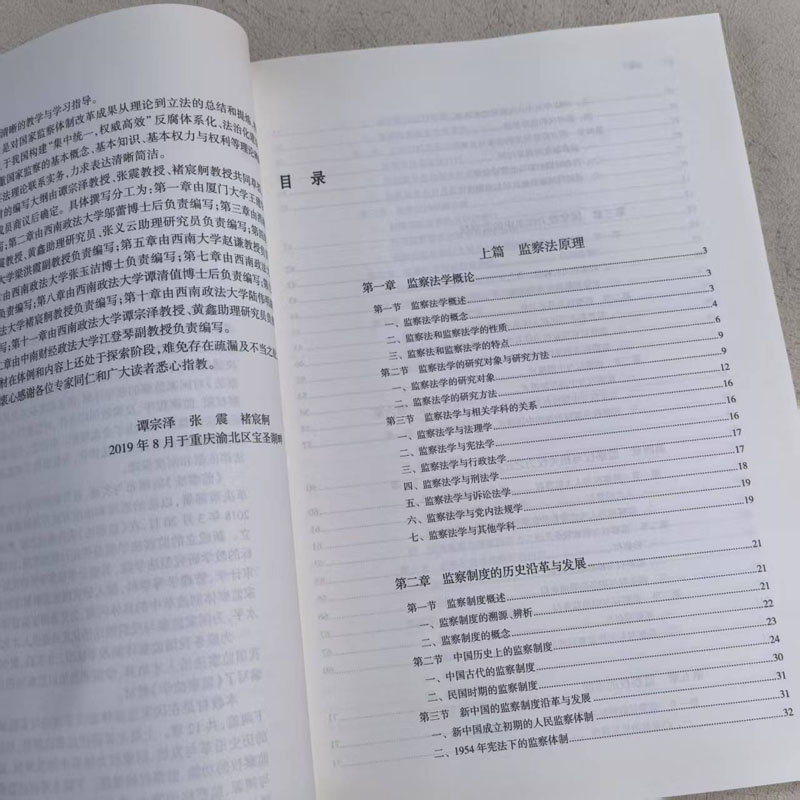 清晰的教学与学习指导。
是对国家监察体制改革成果从理论到立法的总结和提炼
于我国构建“集中统一，权威高效”反腐体系化、法治化
国家监察的基本概念、基本知识、基本权力与权利等理论
法理论联系实务，力求表达清晰简洁。
的编写大纲由谭宗泽教授、张震教授、褚宸舸教授共同
成员商议后确定。具体撰写分工为：第一章由厦门大学王
；第二章由西南政法大学邬蕾博士后负责编写；第三章由
教授、黄鑫助理研究员、张义云助理研究员负责编写；第四
大学梁洪霞副教授负责编写；第五章由西南大学赵谦教授负
由西南政法大学张玉洁博士负责编写；第七章由西南政法大
负责编写；第八章由西南政法大学谭清值博士后负责编写；
法大学褚宸舸教授负责编写；第十章由西南政法大学陆伟明
写；第十一章由西南政法大学谭宗泽教授、黄鑫助理研究员负
章由中南财经政法大学江登琴副教授负责编写。
材在体例和内容上还处于探索阶段，难免存在疏漏及不当之处
衷心感谢各位专家同仁和广大读者悉心指教。
谭宗泽 张 震 褚宸舸
2019年8月于重庆渝北区宝圣湖畔
目 录
上篇 监察法原理
第一章 监察法学概论 3
第一节 监察法学概述 3
一、监察法学的概念 3
二、监察法和监察法学的性质 4
三、监察法和监察法学的特点 6
第二节 监察法学的研究对象与研究方法 8
一、监察法学的研究对象 8
二、监察法学的研究方法 12
第三节 监察法学与相关学科的关系 16
一、监察法学与法理学 16
二、监察法学与宪法学 16
三、监察法学与行政法学 17
四、监察法学与刑法学 17
五、监察法学与诉讼法学 18
六、监察法学与党内法规学 19
七、监察法学与其他学科 19
第二章 监察制度的历史沿革与发展 21
第一节 监察制度概述 21
一、监察制度的溯源、辨析 21
二、监察制度的概念 22
第二节 中国历史上的监察制度 24
一、中国古代的监察制度 24
二、民国时期的监察制度 30
第三节 新中国的监察制度沿革与发展 31
一、新中国成立初期的人民监察体制 31
二、1954年宪法下的监察体制 32